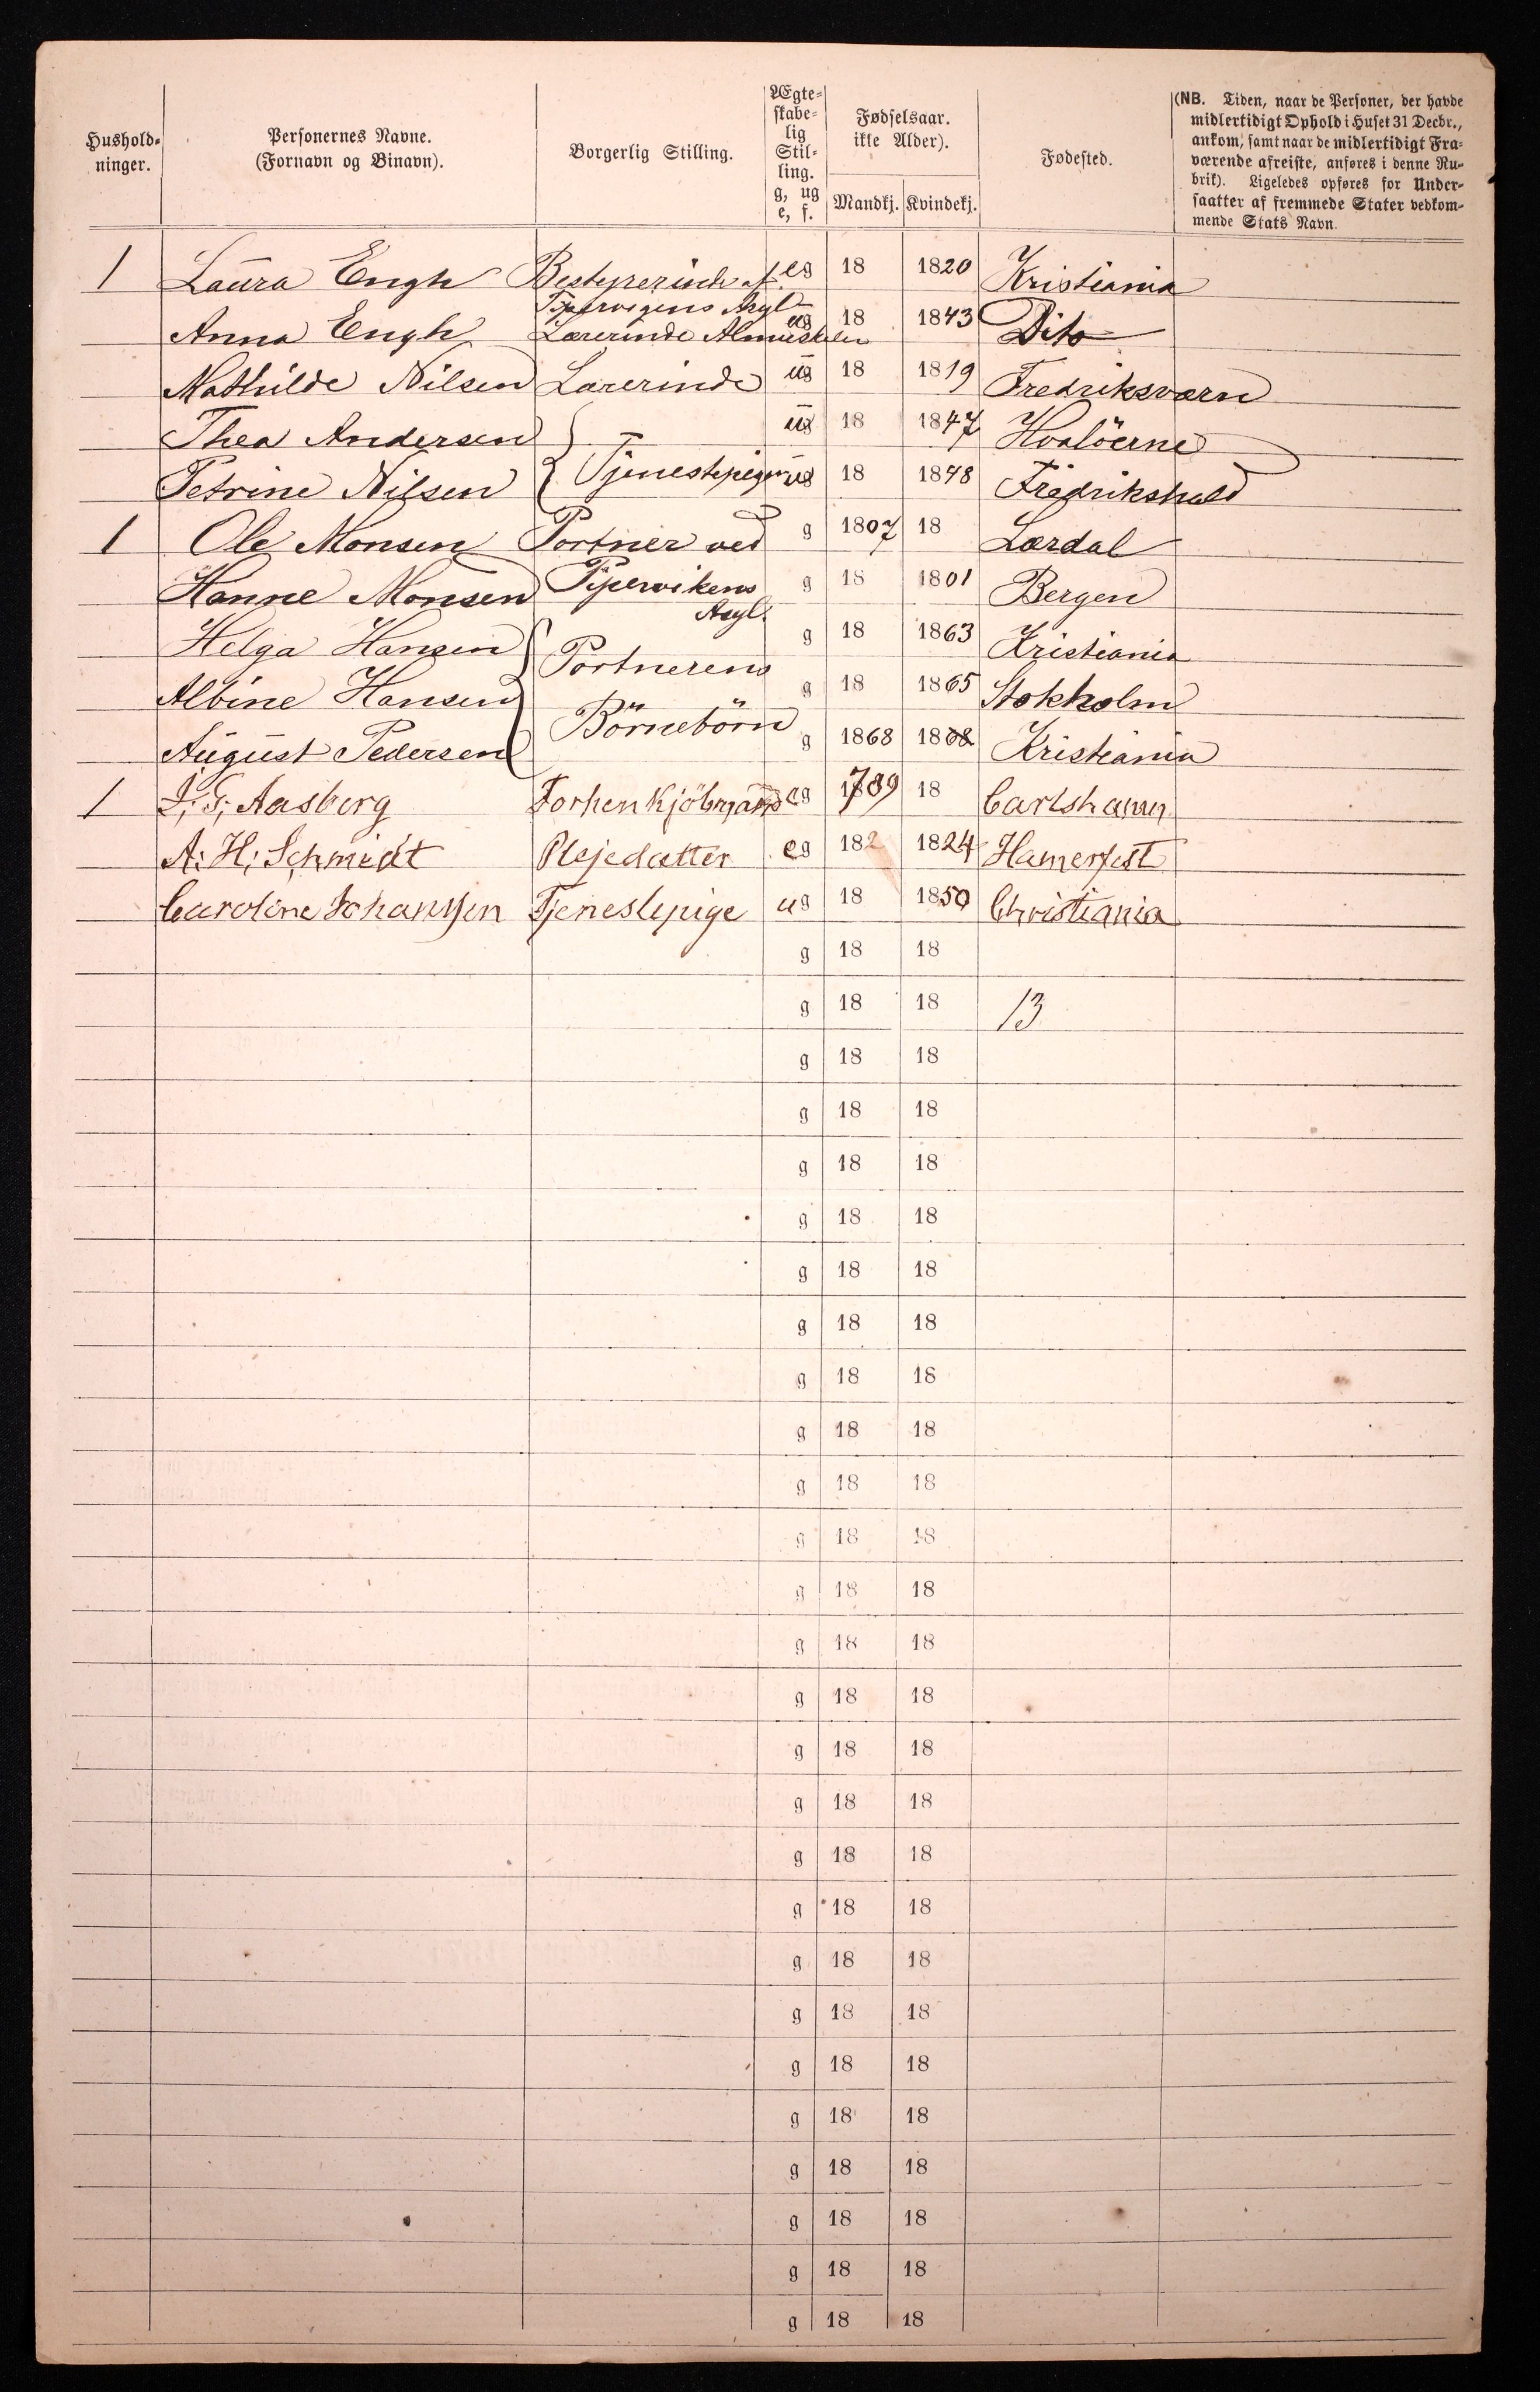 Hushold-
ninger.
Personernes Navne.
(Fornavn og Binavn).
Borgerlig Stilling.
Ægte-
skabe-
lig
Stil-
ling.
g, ug
e, f.
Fødselsaar.
ikke Alder).
Mandkj. Kvindekj.
Fødested.
(NB. Tiden, naar de Personer, der havde
midlertidigt Ophold i Huset 31 Decbr.,
ankom, samt naar de midlertidigt Fra-
værende afreiste, anføres i denne Ru-
brik). Ligeledes opføres for Under-
saatter af fremmede Stater vedkom-
mende Stats Navn.
1 Laura Engh Bestyrerinde af eg 18 1820 Kristiania
Pipervigens Asyl
Anna Engh Lærerinde ug 18 1843 Dito
Mathilde Nilsen Lærerinde ug 18 1819 Fredriksværn
Thea Andersen ug 18 1847 Hvalöerne
Petrine Nilsen } Tjenestepiger ug 18 1848 Fredrikshald
1 Ole Monsen Portner ved g 1807 18 Lærdal
Hanne Monsen Pipervikens g 18 1801 Bergen
Asyl.
Helga Hansen g 18 1863 Kristiania
Portnerens
Albine Hansen g 18 1865 Stokholm
Börnebörn
August Pedersen g 1868 18 Kristiania
1 J. G. Aasberg Forhen Kjöbmand eg 1789 18 Carlshamn
A. H. Schmidt Plejedatter eg 182 1824 Hamerfest
Caroline Johansen Tjenestepige ug 18 1850 Christiania
g 18 18
g 18 18 13
g 18 18
g 18 18
g 18 18
g 18 18
g 18 18
g 18 18
g 18 18
g 18 18
g 18 18
g 18 18
g 18 18
g 18 18
g 18 18
g 18 18
g 18 18
g 18 18
g 18 18
g 18 18
g 18 18
g 18 18
g 18 18
g 18 18
g 18 18
g 18 18
g 18 18